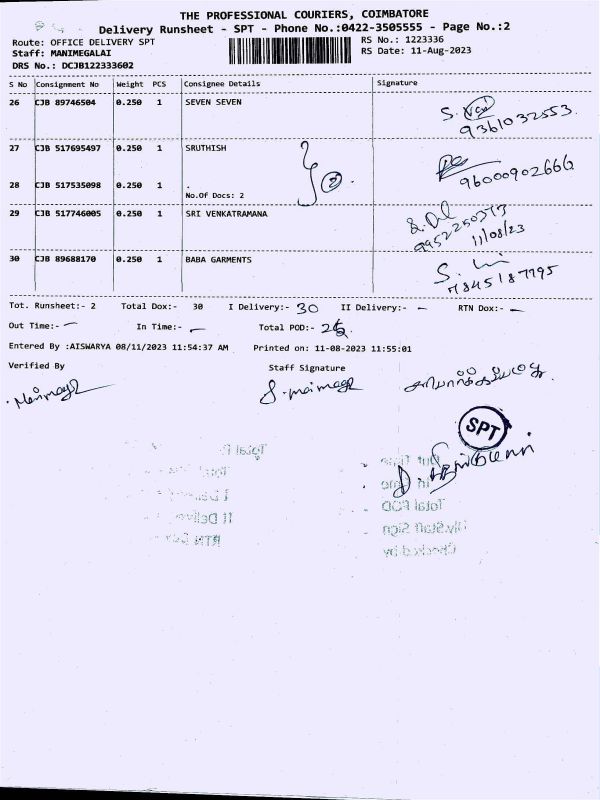 THE PROFESSIONAL COURIERS, COIMBATORE
Delivery Runsheet - SPT - Phone No.:0422-3505555 - Page No.:2
Route: OFFICE DELIVERY SPT
RS No.: 1223336
Staff: MANIMEGALAI
RS Date: 11-Aug-2023
DRS No.: DCJB122333602
S No Consignment No Weight PCS Consignee Details Signature
26 CJB 89746504 0.250 1 SEVEN SEVEN
9361032553
27 CJB 517695497 0.250 1 SRUTHISH
9600090266
28 CJB 517535098 0.250 1 .
No.Of Docs: 2
2
29 CJB 517746005 0.250 1 SRI VENKATRAMANA
9952250373
11/08/23
30 CJB 89688170 0.250 1 BABA GARMENTS
7845187795
Tot. Runsheet:- 2 Total Dox:- 30 I Delivery:- 30 II Delivery:- - RTN Dox:- -
Out Time:- - In Time:- - Total POD:- 26
Entered By :AISWARYA 08/11/2023 11:54:37 AM Printed on: 11-08-2023 11:55:01
Verified By Staff Signature
SPT
Total POD